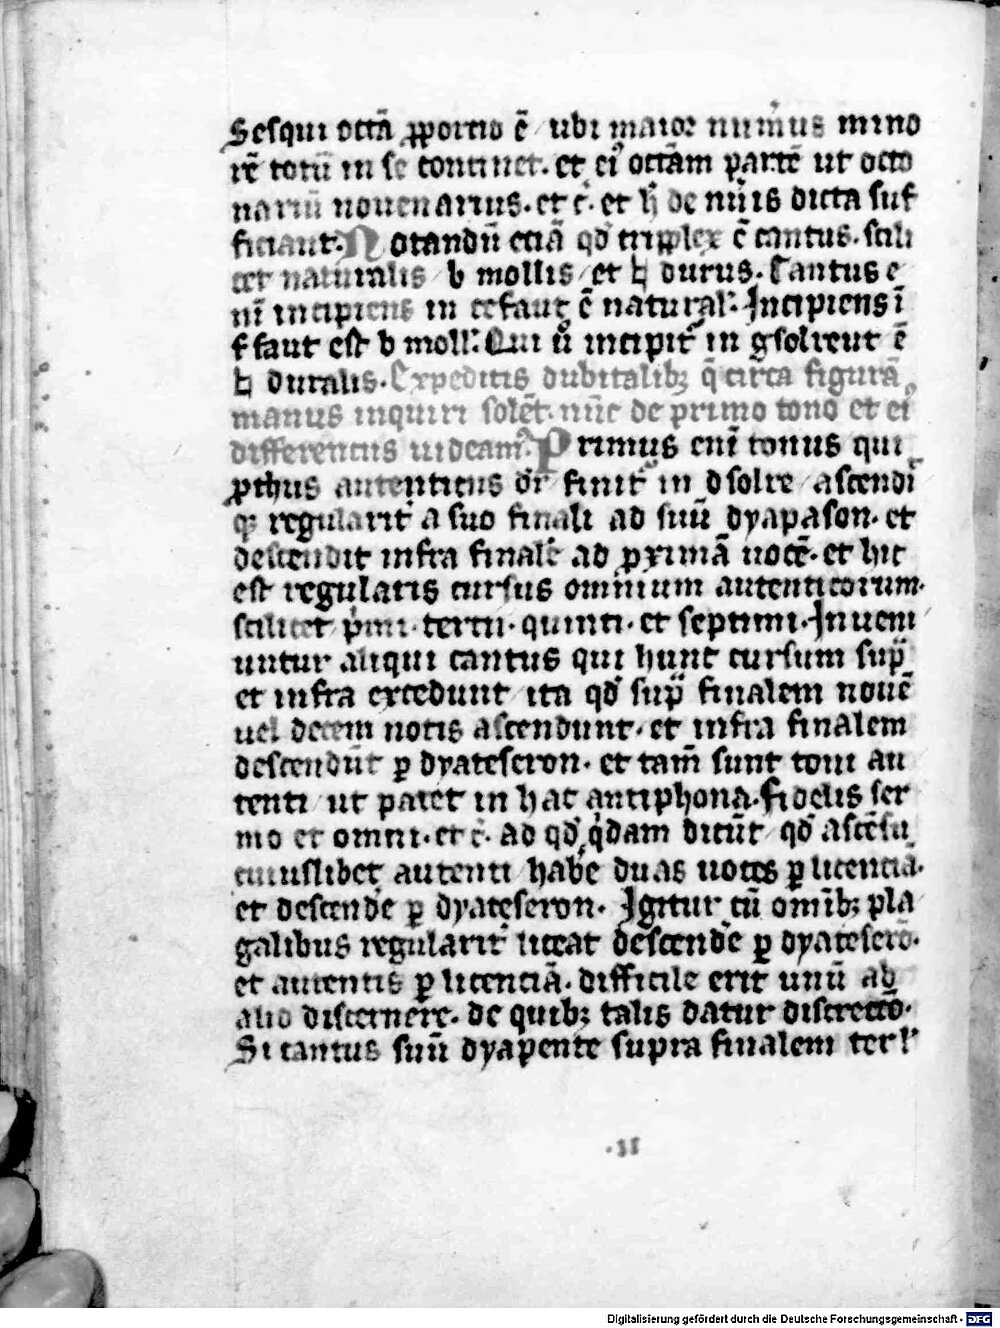 Sesqui octā ꝓporcio ē ubi maior numͥus mino
rē totū in se continet. et eiꝰ octāam partē ut octo
nariū nouenarius. et c̄. et h̄ de nūis dicta suf
ficiant. Notandū eciā qđ tripplex ē cantus. scili
cet naturalis b mollis et ♮ durus. Cantus e
nī incipiens in cefaut ē natural'. Incipiens ī
ffaut est b moll'. Qui ů incipit᷑ in gsolreut ē
♮ duralis. Expeditis dubitalibꝫ q̄ circa figurā
manus inquiri solēt. nūc de primo tono et eiꝰ
differenciis uideamꝰ. Primus enī tonus qui
ꝓthus autenticus dr̄ finit᷑ in dsolre ascendi
qꝫ regularit᷑ a suo finali ad suū dyapason. et
descendit infra finalē ad ꝓximā uocē. et hic
est regularis cursus omnium autenticorum.
scilicet pͥmi. tercii. quinti. et septimi. Inueni
untur aliqui cantus qui hunc cursum sup̄
et infra excedunt ita qđ sup̄ finalem nouē
uel decem notis ascendunt. et infra finalem
descendūt ꝑ dyateseron. et tam̄ sunt toni au
tenti ut patet in hac antiphona. Fidelis ser
mo et omni. et c̄. ad qđ qͥdam dicūt qđ ascēsu
cuiuslibet autenti habē duas uoces ꝑ licenciā.
et descendē ꝑ dyateseron. Igitur cū omībꝫ pla
galibus regularit᷑ liceat descendē ꝑ dyateserō.
et autentis ꝑ licenciā. difficile erit unū ab
alio discernere. de quibꝫ talis datur discrecō.
Si cantus suū dyapente supra finalem ter l'